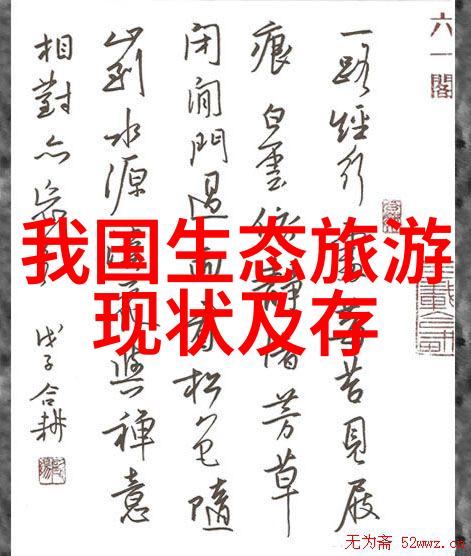 六一閣
一路經行處莓苔見屐
痕白雲依靜渚芳草
閉閒門過雨看松色隨
山到水源溪花與禪意
相對亦忘言
戊子合耕
我国生态旅游
现状及存
无为斋 52wwz.cn